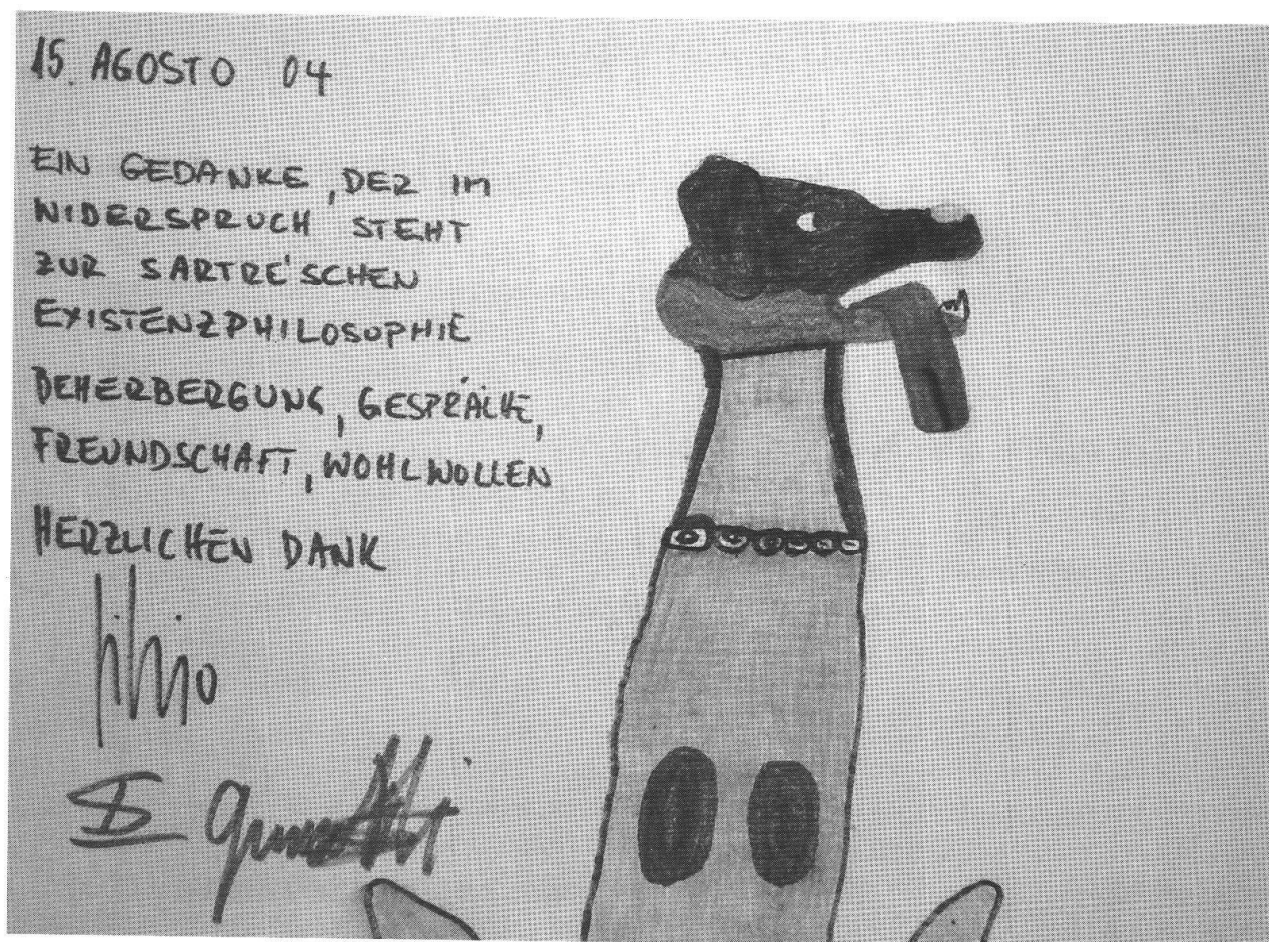 15. AGOSTO 04
EIN GEDANKE, DER IM
WIDERSPRUCH STEHT
ZUR SARTRE'SCHEN
EXISTENZPHILOSOPHIE
BEHERBERGUNG, GESPRÄCHE,
FREUNDSCHAFT, WOHLWOLLEN
HERZLICHEN DANK